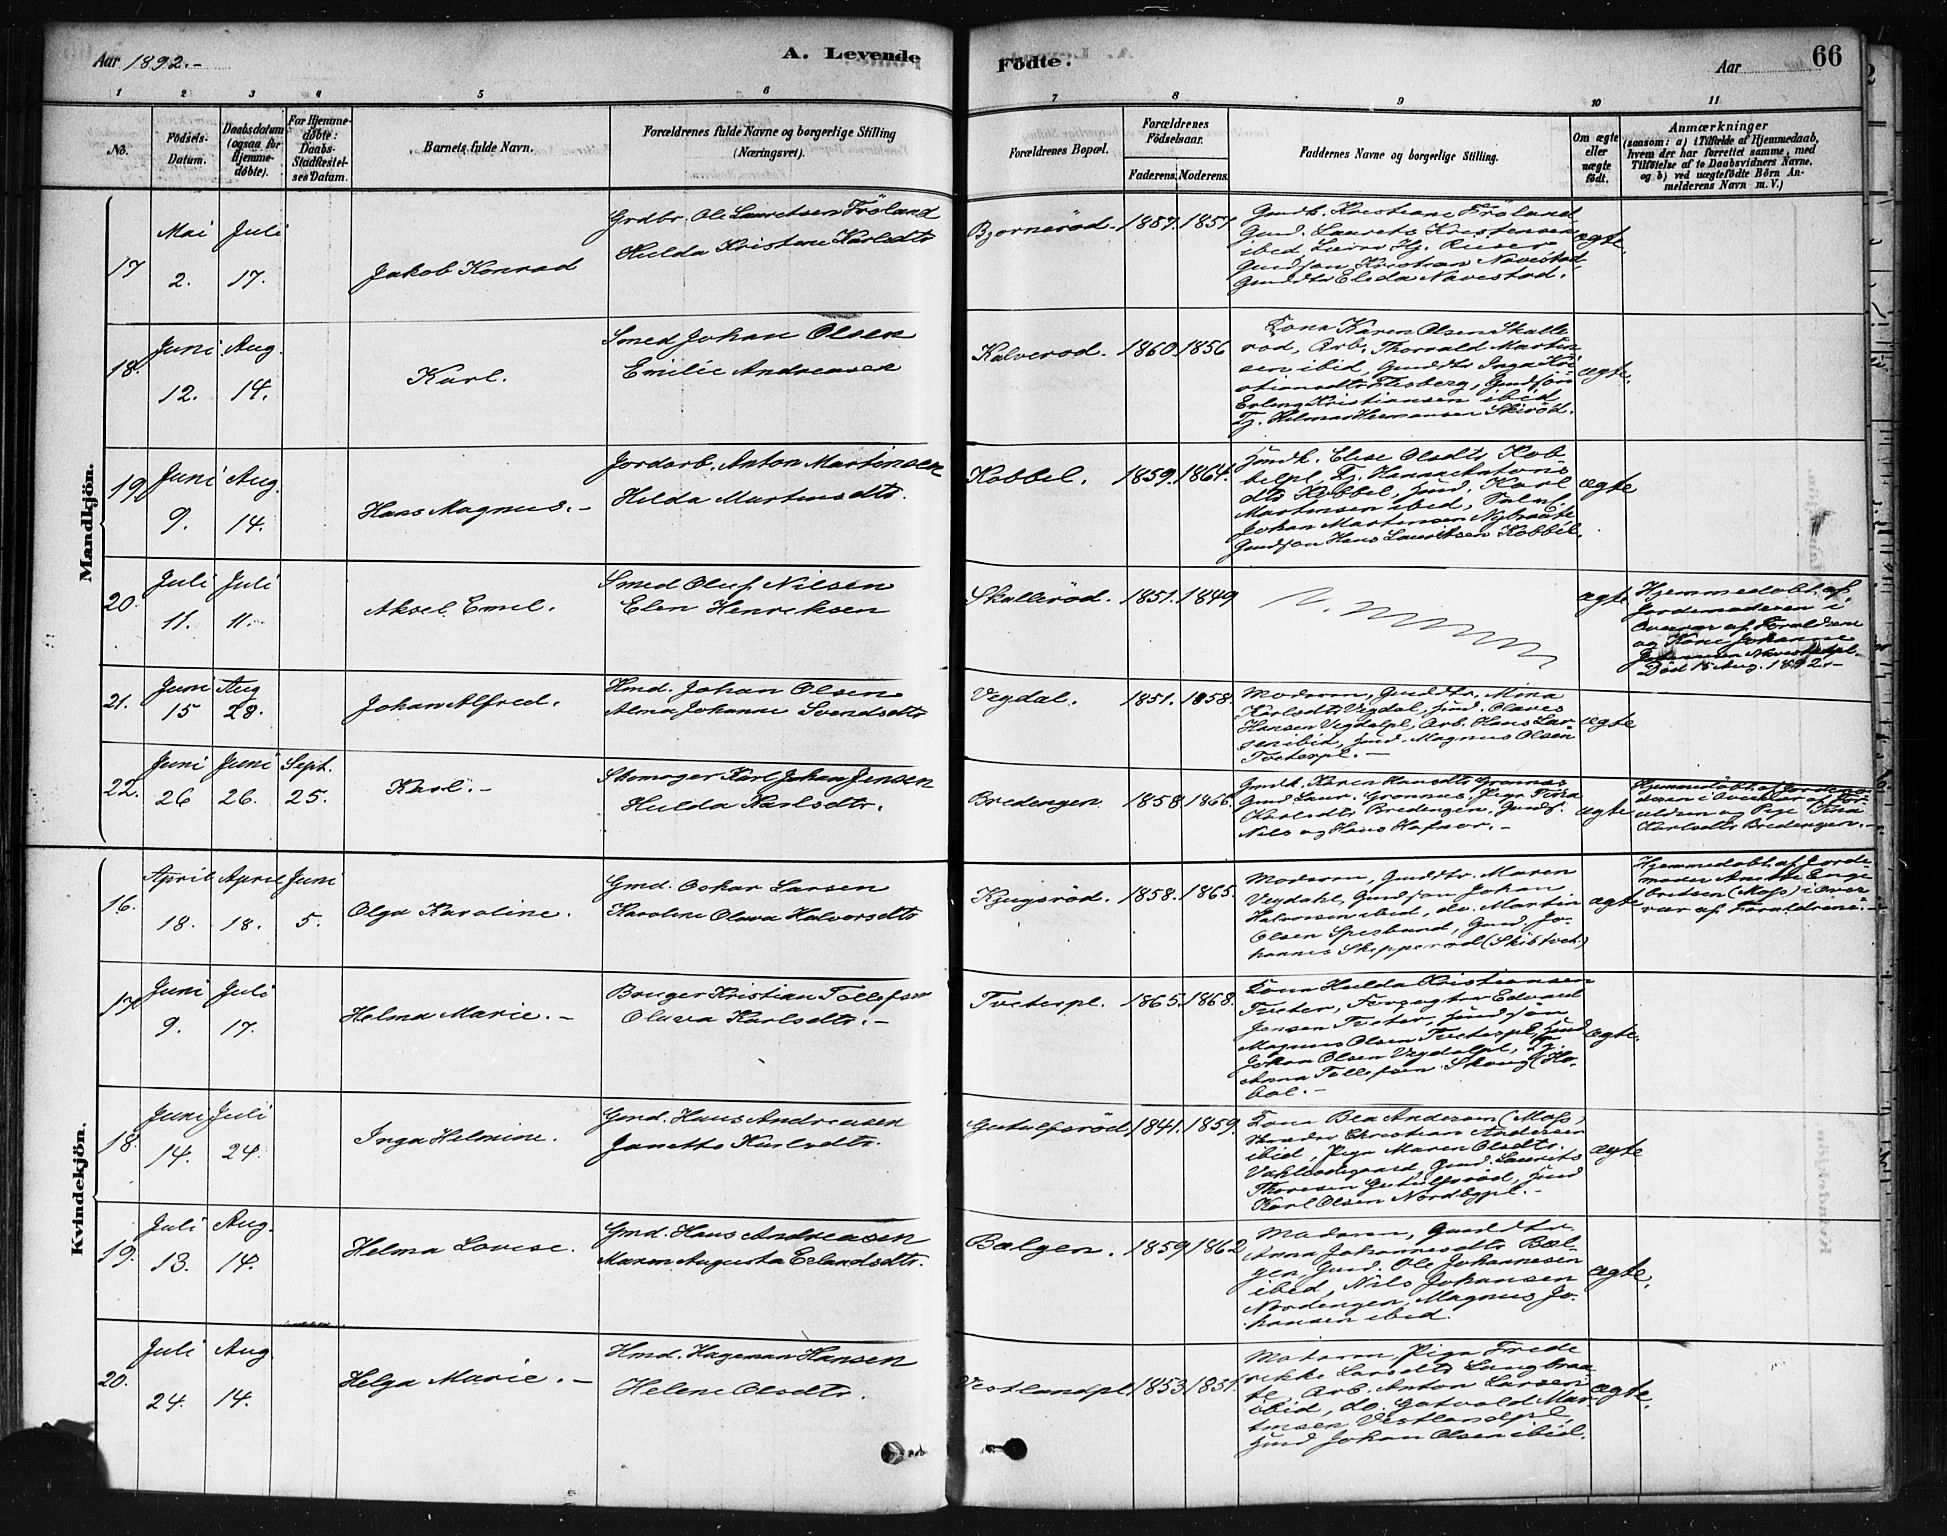 Aar 1892.-
A. Levende
Födte.
Aar
66
1 2 3 4 5 6 7 8 9 10 11
No.
Födsels-Datum.
Daabsdatum (ogsaa for Hjemme-döbte).
For Hjemme-döbte: Daabs-Stadfæstel-ses Datum.
Barnets fulde Navn.
Forældrenes fulde Navne og borgerlige Stilling (Næringsvei).
Forældrenes Bopæl.
Forældrenes Födselsaar.
Faderens. Moderens.
Faddernes Navne og borgerlige Stilling.
Om ægte eller uægte födt.
Anmærkninger
(saasom: a) i Tilfælde af Hjemmedaab, hvem der har forrettet samme, med Tilföielse af to Daabsvidners Navne, og b) ved uægtefödte Börn An-melderens Navn m. V.)
Mandkjön.
17 Mai 2. Juli 17. Jakob Konrad
Grdbr. Ole Lauritsen Fröland
Hulda Kristine Karlsdtr
Bjornerød. 1857. 1857
Gaardb. Kristiane Fröland,
Gmd. Laurits Kristensen
ibid
Kristian Navestad,
Elida Navestad.
ægte.
18. Juni 12. Aug. 14. Karl.
Smed Johan Olsen
Emilie Andreasen
Kalverød. 1860. 1856
Kona Karen Olsen Skalle
rød, Arb. Thorvald Marten
sen ibid, Gmddtr Inga Kri
stiansdtr Flesberg, Gmdsön
Erling Kristiansen ibid
Tj. Hilmar Hermansen Skiröd.
ægte.
19. Juni 9. Aug. 14. Hans Magnus.-
Jordarb. Anton Martinsen
Hilda Martinsdtr.
Kobbel. 1859. 1864.
Hmdk. Elise Olsdtr Kob-
belpl, Tj. Hanna Antons
dtr Kobbel, Hmd. Karl
Martinsen ibid,
Johan Martensen Nybraate
Gmdsøn Hans Lauritsen Kobbel.
ægte
20. Juli 11. Juli 11. Aksel Emil.
Smed Oluf Nilsen
Elen Henriksen
Skallerød. 1851. 1849
ægte
Hjemmedøbt af
Jordemoderen i
Overvær af Forældrene
og Kone Johanne
Død 15 Aug. 1892.-
21. Juni 15 Aug 28. Johan Alfred.
Hmd. Johan Olsen
Alma Johanne Svendsdtr
Vegdal. 1851. 1858.
Moderen, Gmddtr. Mina
Karlsdtr Vegdal, Hmd. Olaves
Hansen Vegdalpl, Arb. Hans Lar
sen ibid, Hmd. Magnus Olsen
Tveterpl.-
ægte
22. Juni 26 Juni 26. Sept. 25. Karl.-
Skomager Karl Johan Jensen
Hulda Karlsdtr.
Bredengen 1858. 1866.
Gmdk. Karen Hansdtr Grønnes
Gmd Laur. Grønnes, Pige Tina
Karlsdtr Bredengen, Gmds.
Nils og Hans Hafsor.-
ægte
Hjemmedøbt af Jordemo
deren i Overvær af For
ældren og Pige Tina
Karlsdtr Bredengen.-
Kvindekjön.
16. April 18. April 18. Juni 5. Olga Karoline.
Gmd. Oskar Larsen
Karoline Olava Halvorsdtr
Kjugsrød. 1858. 1865.
Moderen, Gmddtr. Maren
Vegdahl, Gmdsøn Johan
Halvorsen ibid, do. Martin
Olsen Spesbund, Gmd. Jo-
hannes Skipperød (Skibtvet.)
ægte
Hjemmedøbt af Jorde-
moder Anette Enge
bretsen (Moss) i Over
vær af Forældrene.-
17. Juni 9. Juli 17. Helma Marie.-
Bruger Kristian Tollefsen
Olava Karlsdtr.-
Tveterpl. 1865. 1868.
Kona Hulda Kristiansen
Tveter, Forpagter Edvard
Jensen Tveter, Hmdsøn
Magnus Olsen Tveterpl, Hmd
Johan Olsen Vegdalpl, Tj.
Anna Tollefsen Skaug (Ho-
böl.-
ægte.
18. Juni 14. Juli 24. Inga Helmine.
Gmd. Hans Andreasen
Janette Karlsdtr.
Gutulfsrød 1841. 1859.
Kona Bea Andersen (Moss)
Christian Andersen
ibid, Pige Maren Olsdtr.
Gmd. Laurits
Thoresen Gutulfsrød, Hmd
Karl Olsen Nordbypl.-
ægte
19. Juli 13. Aug. 14. Helma Lovise.
Gmd. Hans Andreasen
Maren Augusta Erlandsdtr.
Bælgen. 1859. 1862
Moderen, Gmddtr
Anna Johannesdtr Bæl-
gen, Gmd. Ole Johannesen
ibid, Nils Johansen
Nordengen, Magnus Jo-
hansen ibid.
ægte.
20. Juli 24. Aug 14. Helga Marie.-
Hmd. Hageman Hansen
Helene Olsdtr.
Vestlandpl 1853 1851.
Moderen, Pige Frede
rikke Larsdtr Langbraa-
te, Arb. Anton Larsen
ibid, do. Gotvald Mar-
tinsen Vestlandpl,
Hmd Johan Olsen ibid.
ægte.